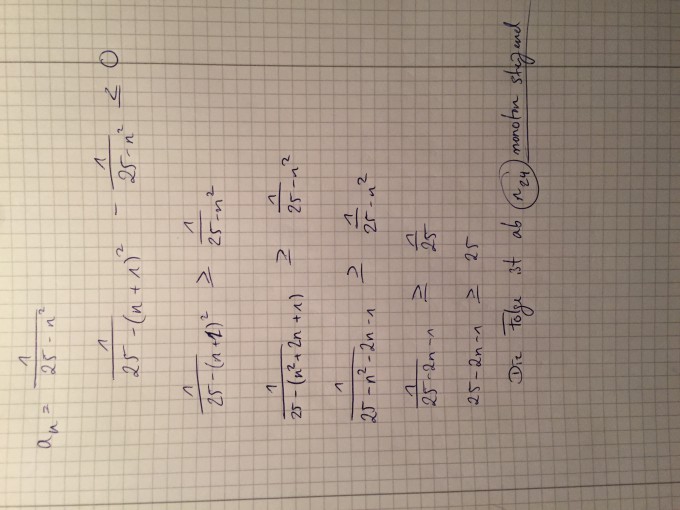 aₙ = 1/(25-n²)
1/(25-(n+1)²) - 1/(25-n²) ≤ 0
1/(25-(n+1)²) ≥ 1/(25-n²)
1/(25-(n²+2n+1)) ≥ 1/(25-n²)
1/(25-n²-2n-1) ≥ 1/(25-n²)
1/(25-2n-1) ≥ 1/25
25-2n-1 ≥ 25
Die Folge ist ab n₂₄ monoton steigend